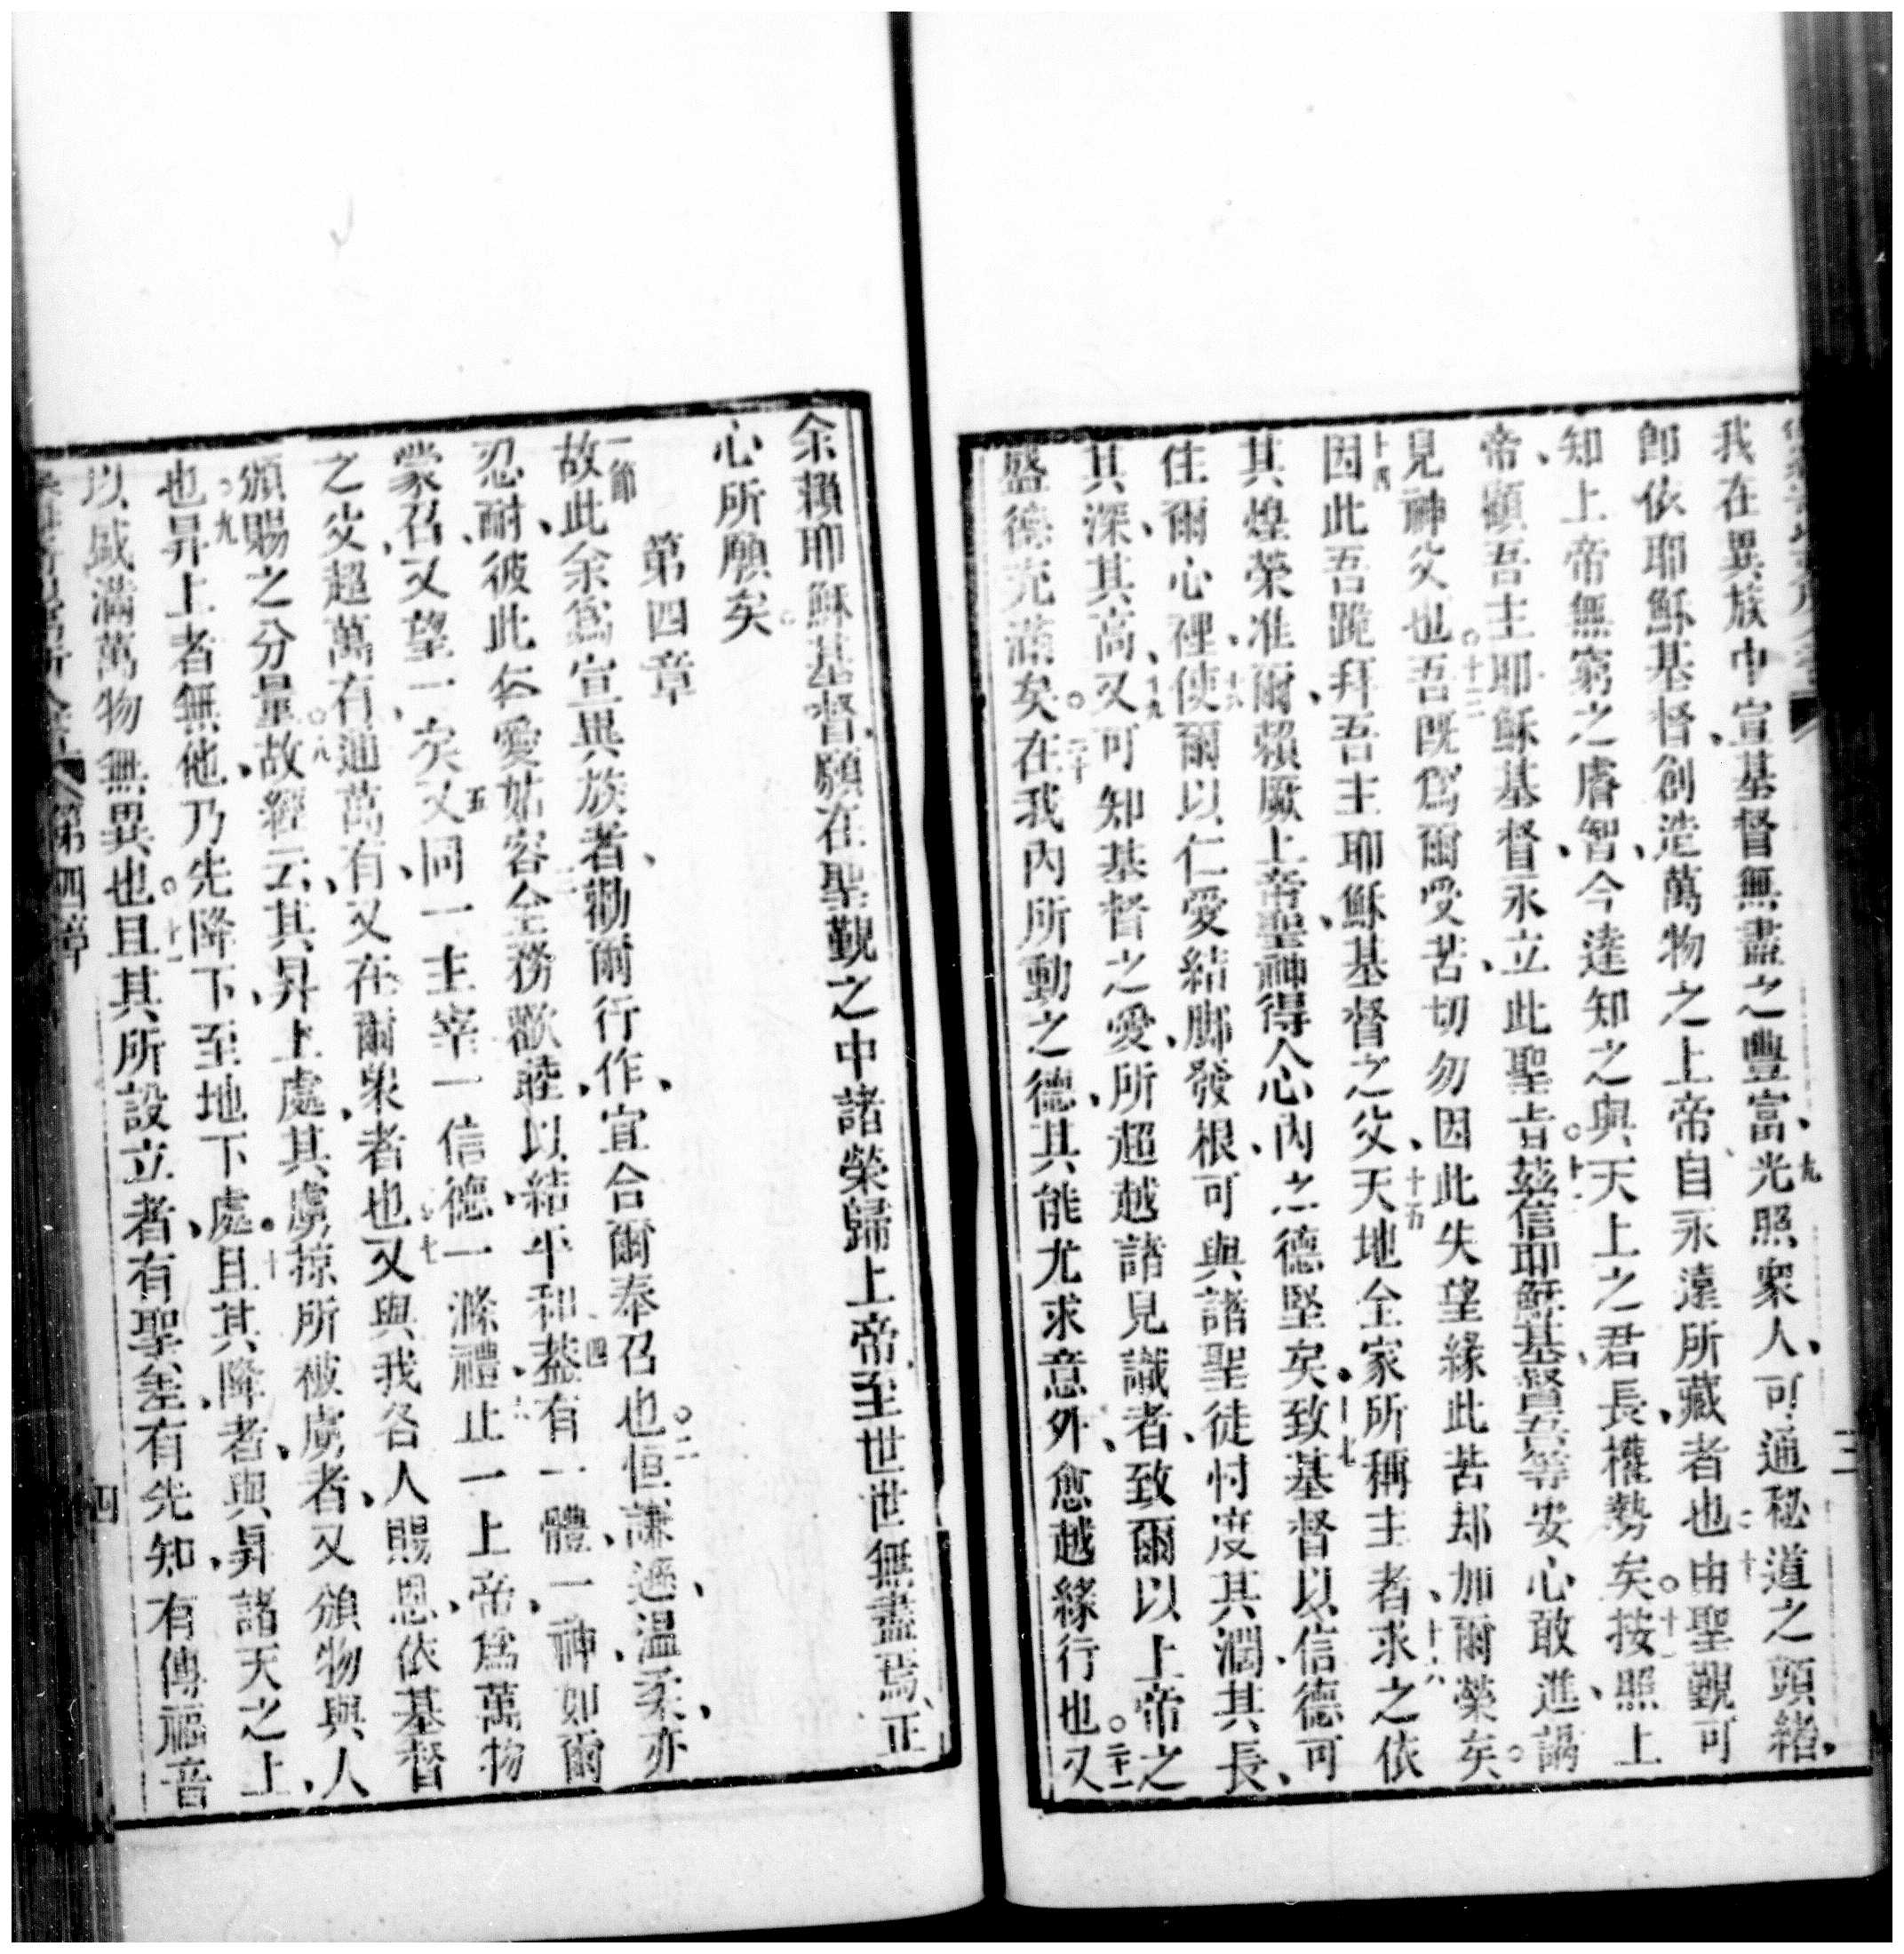 我在異族中、宣基督無盡之豐富、九光照衆人、可通秘道之頭緒、
卽依耶穌基督創造萬物之上帝、自永遠所藏者也、十由聖觀可
知上帝無窮之睿智、今達知之與天上之君長、權勢矣。十一按照上
帝、願吾主耶穌基督、永立此聖旨。十二茲信耶穌基督、吾等安心敢進、謁
見神父也。十三吾旣爲爾受苦、切勿因此失望、緣此苦却加爾榮矣。
十四因此吾跪拜吾主耶穌基督之父、十五天地全家所稱主者、十六求之依
其煌榮、准爾賴厥上帝聖神、得人心內之德堅矣。十七致基督以信德可
住爾心裡、十八使爾以仁愛結脚、發根、可與諸聖徒忖度其濶、其長、
其深、其高、十九又可知基督之愛、所超越諸見識者、致爾以上帝之
盛德充滿矣。二十在我內所動之德、其能尤求意外、愈越緣行也。二十一又
三
余賴耶穌基督、願在聖觀之中、諸榮歸上帝、至世世無盡焉、正
心所願矣。
第四章
一節故此余爲宣異族者、勸爾行作、宜合爾奉召也。二恒謙遜、溫柔、亦
忍耐、彼此仁愛姑容、三全務歡睦、以結平和、四蓋有一體、一神、如爾
蒙召、又望一矣、五又同一主宰、一信德、一滌禮、六止一上帝、爲萬物
之父、超萬有、通萬有、又在爾衆者也、七又與我各人賜恩、依基督
頒賜之分量。八故經云、其昇上處、其虜掠所被虜者、又頒物與人、
也。九昇上者無他、乃先降下、至地下處。十且其降者、與昇諸天之上、
以盛滿萬物無異也。十一且其所設立者、有聖差、有先知、有傳福音
第四章
四